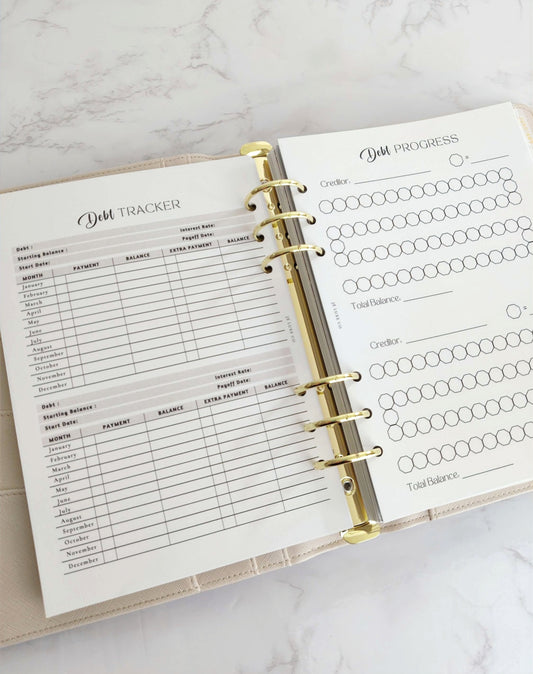 Debt TRACKER
Debt :
Starting Balance : Interest Rate:
Start Date: Payoff Date:
MONTH PAYMENT BALANCE EXTRA PAYMENT BALANCE
January
February
March
April
May
June
July
August
September
October
November
December
Debt :
Starting Balance : Interest Rate:
Start Date: Payoff Date:
MONTH PAYMENT BALANCE EXTRA PAYMENT BALANCE
January
February
March
April
May
June
July
August
September
October
November
December
Debt PROGRESS
Creditor: =
Total Balance:
Creditor: =
Total Balance: